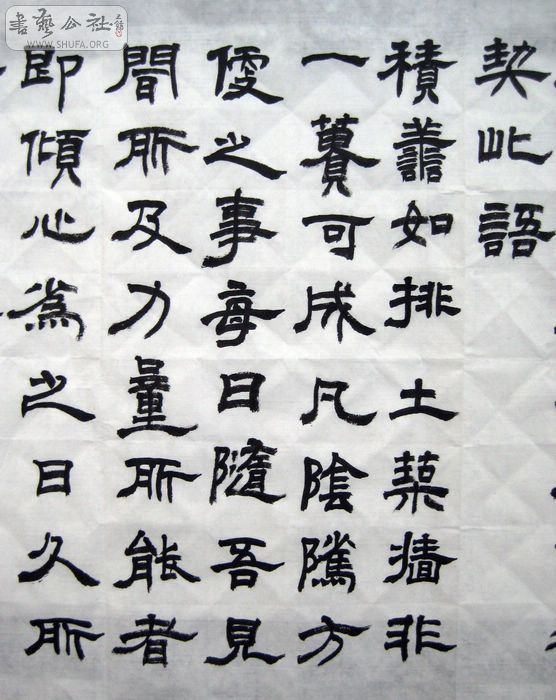 書藝公社
WWW.SHUFA.ORG
契此語
積善如排土築墻非
一蕢可成凡陰騭方
便之事每日隨吾見
聞所及力量所能者
即傾心為之日久所